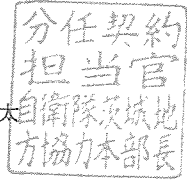 分任契約
担当官
自衛隊茨城地
方協力本部長
大